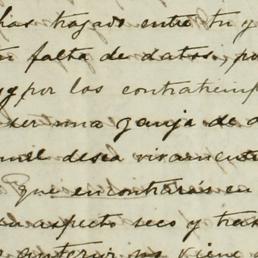 has tragado entre tu y
falta de datos, po
y por los contratiemp
ser una zanja de a
mil desea vivamente
que encontrarás en
aspecto seco y tras
anterior no viene